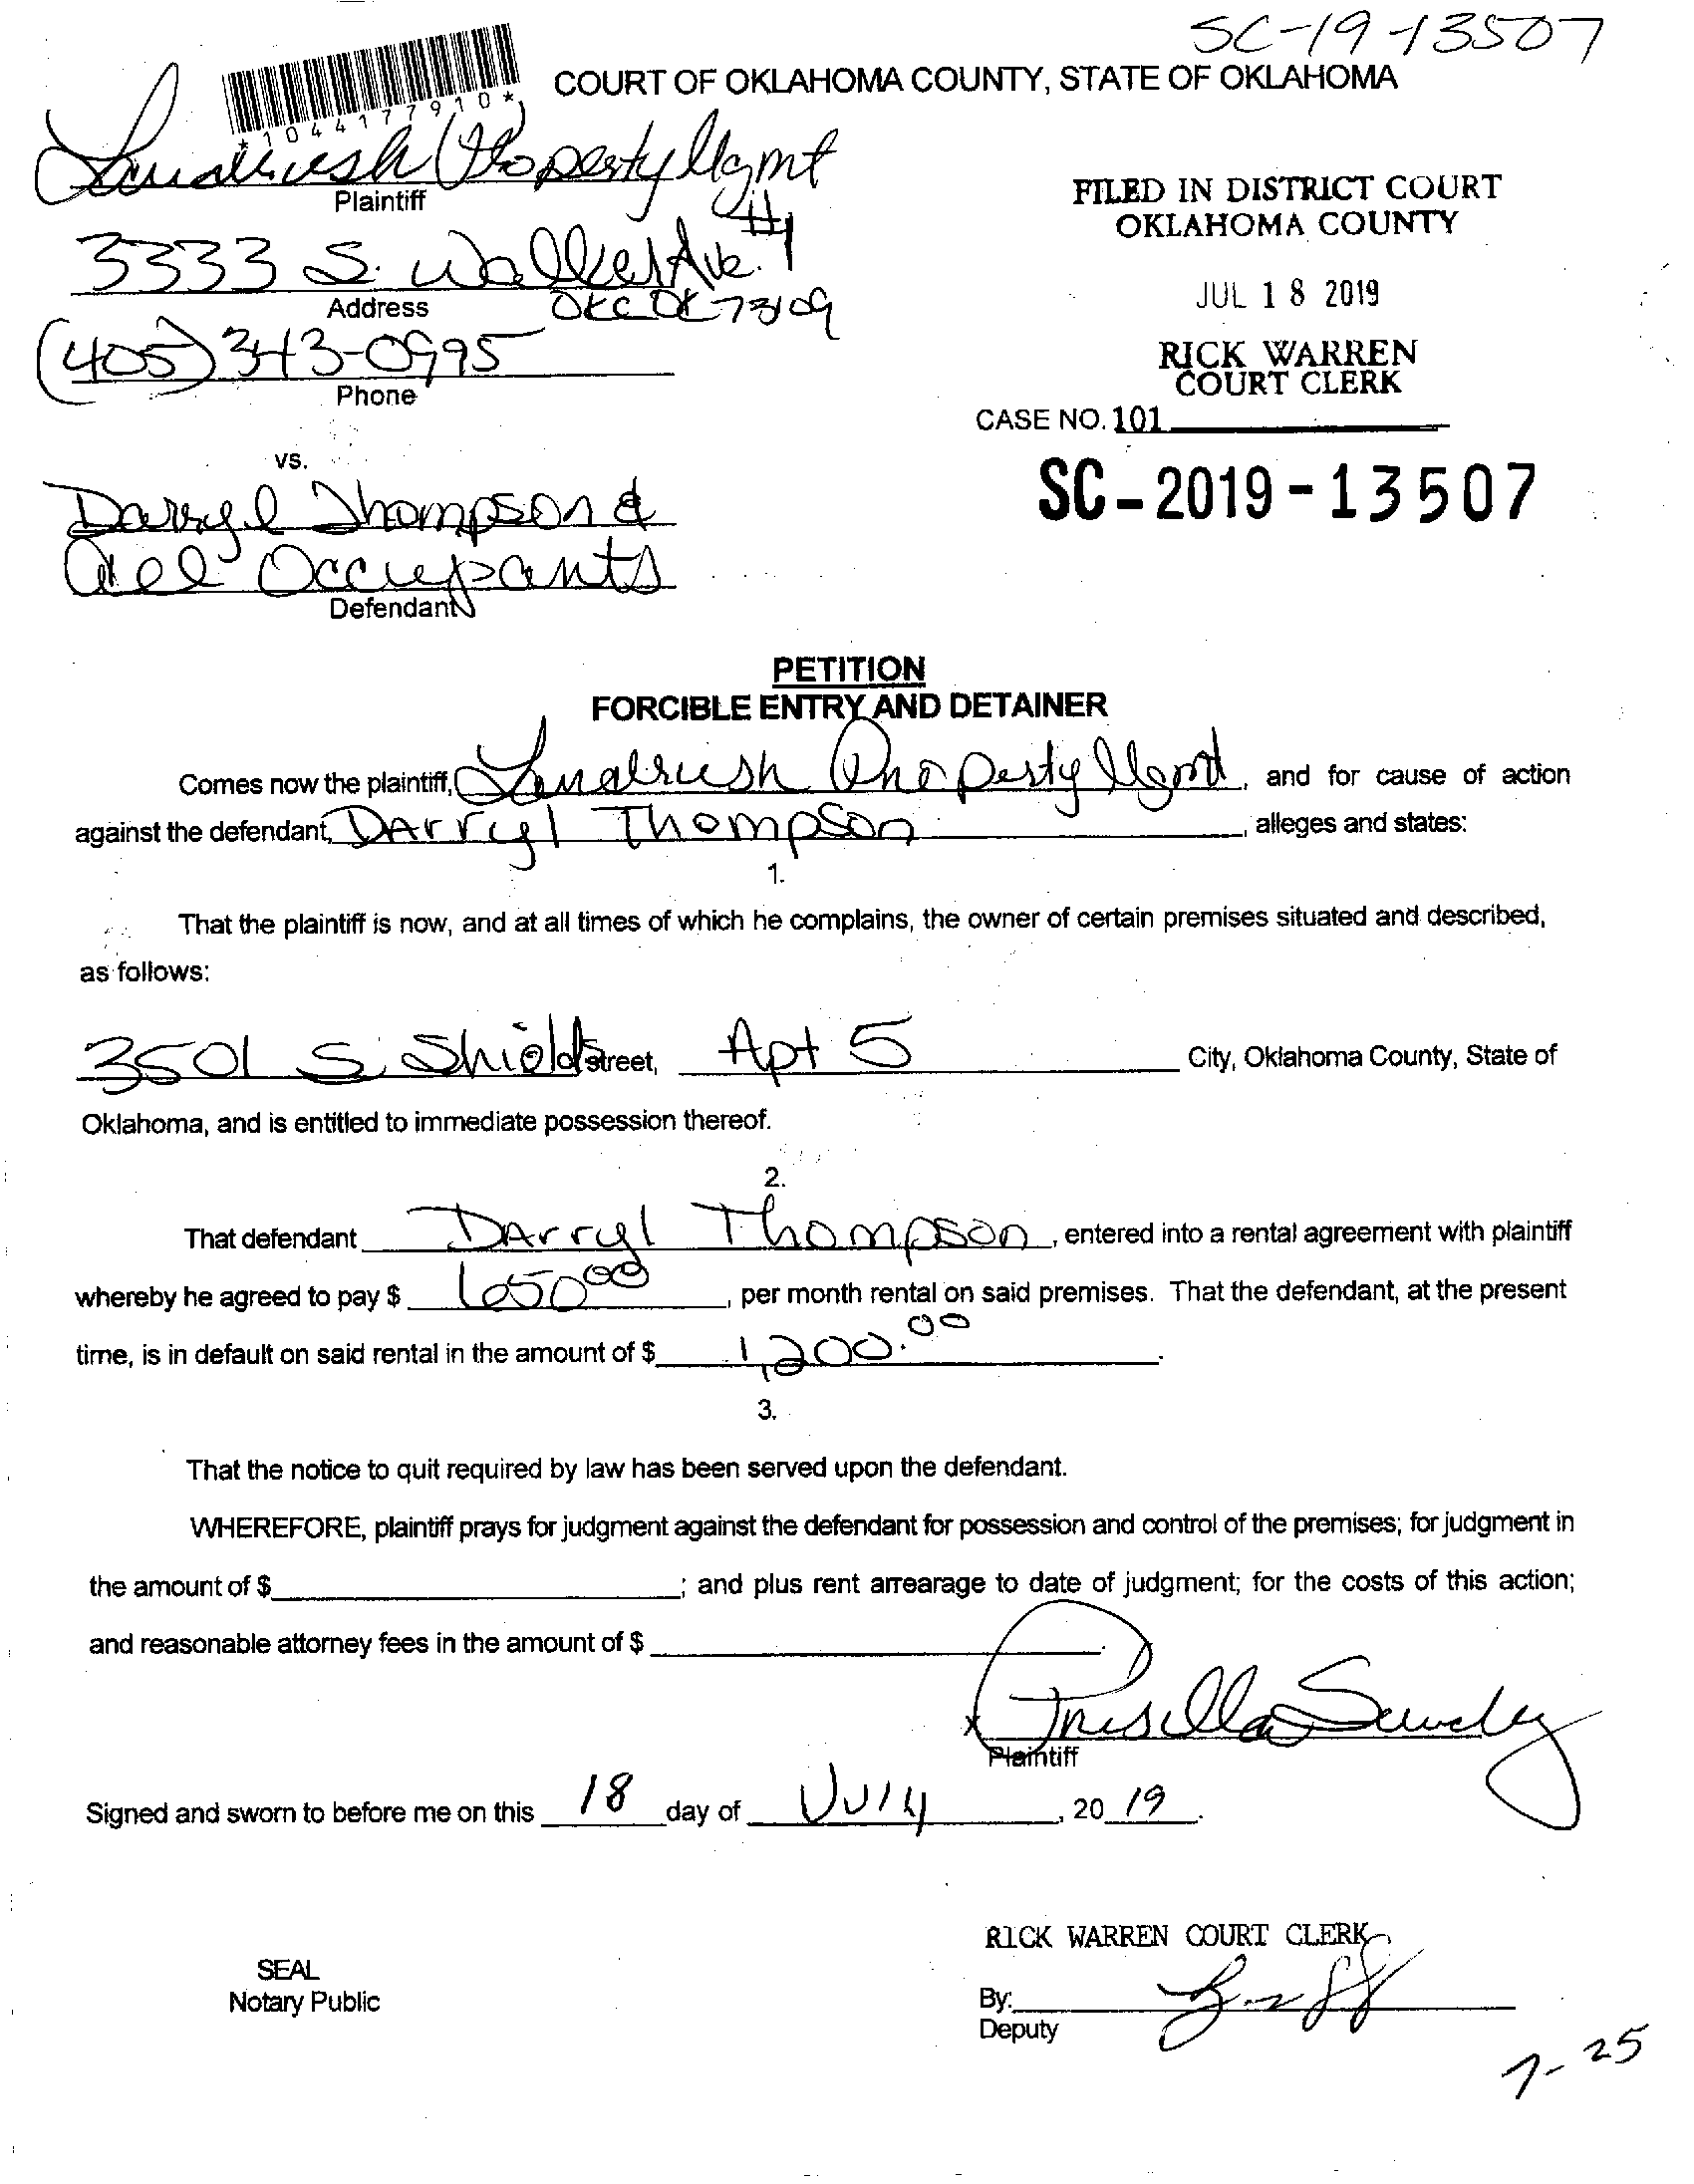 SC-19-13507
*1044177910*
COURT OF OKLAHOMA COUNTY, STATE OF OKLAHOMA
Landrush Property Mgmt
Plaintiff
3333 S. Walker Ave. #1
Address OKC OK 73109
(405) 343-0995
Phone
FILED IN DISTRICT COURT
OKLAHOMA COUNTY
JUL 18 2019
RICK WARREN
COURT CLERK
CASE NO. 101
SC-2019-13507
vs.
Darryl Thompson &
all Occupants
Defendant
PETITION
FORCIBLE ENTRY AND DETAINER
Comes now the plaintiff, Landrush Property Mgmt, and for cause of action
against the defendant, Darryl Thompson, alleges and states:
1.
That the plaintiff is now, and at all times of which he complains, the owner of certain premises situated and described,
as follows:
3501 S. Shields street, Apt 5 City, Oklahoma County, State of
Oklahoma, and is entitled to immediate possession thereof.
2.
That defendant Darryl Thompson, entered into a rental agreement with plaintiff
whereby he agreed to pay $ 650.00, per month rental on said premises. That the defendant, at the present
time, is in default on said rental in the amount of $ 1,200.00.
3.
That the notice to quit required by law has been served upon the defendant.
WHEREFORE, plaintiff prays for judgment against the defendant for possession and control of the premises; for judgment in
the amount of $ ; and plus rent arrearage to date of judgment; for the costs of this action;
and reasonable attorney fees in the amount of $ .
x Prisilla
Plaintiff
Signed and sworn to before me on this 18 day of July, 20 19.
RICK WARREN COURT CLERK
SEAL
Notary Public
By:
Deputy
7-25